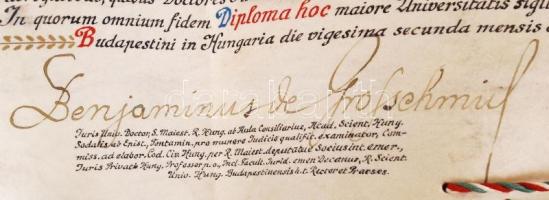 In quorum omnium fidem Diploma hoc maiore Universitatis sigil
Budapestini in Hungaria die vigesima secunda mensis
Benjaminus de Grosschmid
Iuris Univ. Doctor, S. Maiest. R. Hung. ab Aula Consiliarius, Acad. Scient. Hung.
Sodalis ab Epist., Tentamin. pro munere Iudicis qualifit. examinator, Com-
miss. ad elabor. Cod. Civ. Hung. per R. Maiest. deputatus Socius int. emer.,
Iuris Privati Hung. Professor p. o., Incl. Facult. Iurid. emen Decanus, R. Scient.
Univ. Hung. Budapestinensis h. t. Rector et Praeses.